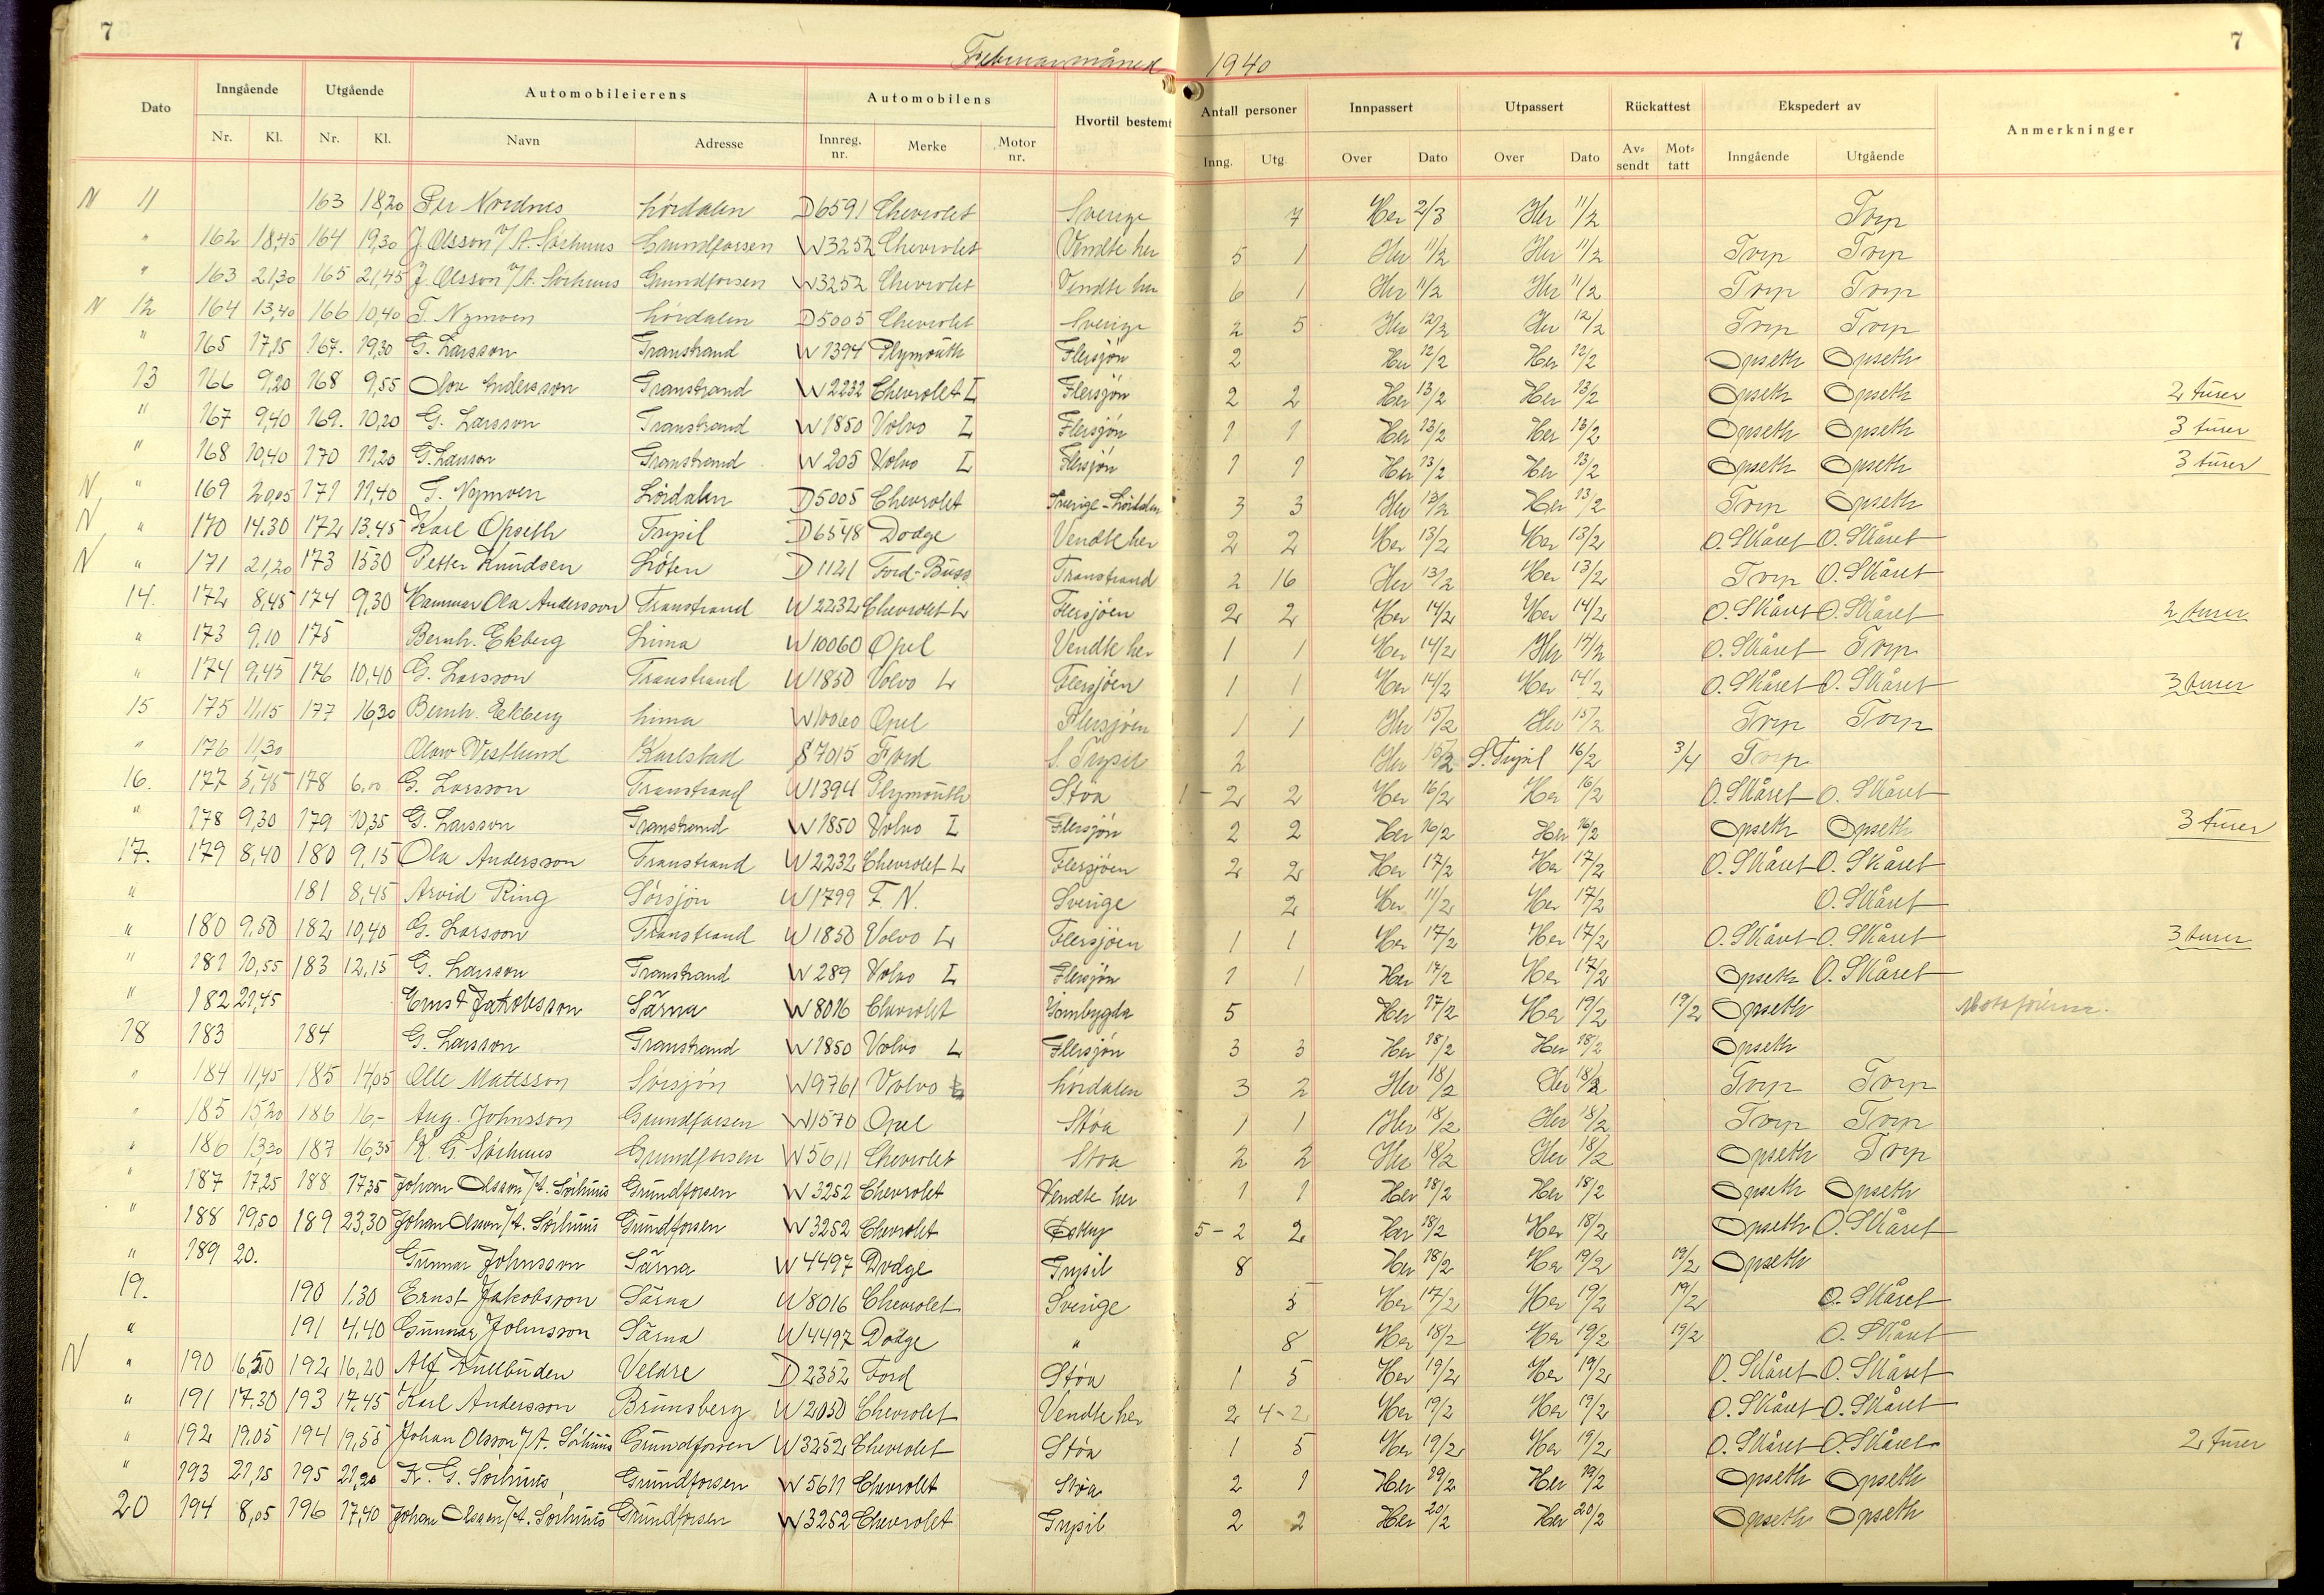 7 7
Februar måned 1940
Dato Inngående Utgående Automobileierens Automobilens Hvortil bestemt Antall personer Innpassert Utpassert Rückattest Ekspedert av Anmerkninger
Nr. Kl. Nr. Kl. Navn Adresse Innreg. nr. Merke Motor nr. Inng. Utg. Over Dato Over Dato Av-sendt Mot-tatt Inngående Utgående
N 11 163 18,20 Per Nordnes Lördalen D6591 Chevrolet Sverige 7 Her 2/3 Her 11/2 Torp
" 162 18,45 164 19,30 J. Olsson v/A. Sörhuus Grundforsen W3252 Chevrolet Vendte her 5 1 Her 11/2 Her 11/2 Torp Torp
" 163 21,30 165 21,45 J. Olsson v/A. Sörhuus Grundforsen W3252 Chevrolet Vendte her 6 1 Her 11/2 Her 11/2 Torp Torp
N 12 164 13,40 166 10,40 T. Nymoen Lördalen D5005 Chevrolet Sverige 2 5 Her 12/2 Her 12/2 Torp Torp
" 165 17,15 167. 19,30 G. Larsson Transtrand W1394 Plymouth Flersjön 2 Her 12/2 Her 12/2 Opseth Opseth
13 166 9,20 168 9,55 Olov Andersson Transtrand W2232 Chevrolet L Flersjön 2 2 Her 13/2 Her 13/2 Opseth Opseth 2 turer
" 167 9,40 169. 10,20 G. Larsson Transtrand W1850 Volvo L Flersjön 1 1 Her 13/2 Her 13/2 Opseth Opseth 3 turer
" 168 10,40 170 11,20 G. Larsson Transtrand W205 Volvo L Flersjön 1 1 Her 13/2 Her 13/2 Opseth Opseth 3 turer
N " 169 20,05 171 11,40 T. Nymoen Lördalen D5005 Chevrolet Sverige-Lördalen 3 3 Her 13/2 Her 13/2 Torp Opseth
N " 170 14.30 172 13.45 Karl Opseth Trysil D6548 Dodge Vendte her 2 2 Her 13/2 Her 13/2 O. Skåret O. Skåret
N " 171 21,20 173 1530 Petter Knudsen Löten D1121 Ford-Buss Transtrand 2 16 Her 13/2 Her 13/2 Torp O. Skåret
14. 172 8,45 174 9,30 Hammar Ola Andersson Transtrand W2232 Chevrolet L Flersjöen 2 2 Her 14/2 Her 14/2 O. Skåret O. Skåret 2 turer
" 173 9.10 175 Bernh. Ekberg Lima W10060 Opel Vendte her 1 1 Her 14/2 Her 14/2 O. Skåret Torp
" 174 9,45 176 10,40 G. Larsson Transtrand W1850 Volvo L Flersjöen 1 1 Her 14/2 Her 14/2 O. Skåret O. Skåret 3 turer
15 175 11,15 177 16,30 Bernh. Ekberg Lima W10060 Opel Flersjöen 1 1 Her 15/2 Her 15/2 Torp Torp
" 176 11,30 Olow Westlund Karlstad S7015 Ford S. Trysil 2 Her 15/2 S. Trysil 16/2 3/4 Torp
16. 177 5,45 178 6,00 G. Larsson Transtrand W1394 Plymouth Stöa 1-2 2 Her 16/2 Her 16/2 O. Skåret O. Skåret
" 178 9,30 179 10,35 G. Larsson Transtrand W1850 Volvo L Flersjön 2 2 Her 16/2 Her 16/2 Opseth Opseth 3 turer
17. 179 8,40 180 9,15 Ola Andersson Transtrand W2232 Chevrolet L Flersjöen 2 2 Her 17/2 Her 17/2 O. Skåret O. Skåret
" 181 8,45 Arvid Ring Sörsjön W1799 F.N. Sverige 2 Her 11/2 Her 17/2 O. Skåret
" 180 9.50 182 10,40 G. Larsson Transtrand W1850 Volvo L Flersjöen 1 1 Her 17/2 Her 17/2 O. Skåret O. Skåret 3 turer
" 181 10,55 183 12,15 G. Larsson Transtrand W289 Volvo L Flersjön 1 1 Her 17/2 Her 17/2 Opseth O. Skåret
" 182 21,45 Ernst Jakobsson Särna W8016 Chevrolet 5 Her 17/2 Her 19/2 19/2 Opseth
18 183 184 G. Larsson Transtrand W1850 Volvo L Flersjön 3 3 Her 18/2 Her 18/2 Opseth
" 184 11,45 185 14,05 Olle Mattsson Sörsjön W9761 Volvo Lördalen 3 2 Her 18/2 Her 18/2 Torp Torp
" 185 15,20 186 16,- Aug. Johnsson Grundforsen W1570 Opel Stöa 1 1 Her 18/2 Her 18/2 Torp Torp
" 186 13,30 187 16,35 K. G. Sörhuus Grundforsen W5611 Chevrolet Stöa 2 2 Her 18/2 Her 18/2 Opseth Torp
" 187 17,25 188 17,35 Johan Olsson v/A. Sörhuus Grundforsen W3252 Chevrolet Vendte her 1 1 Her 18/2 Her 18/2 Opseth Opseth
" 188 19,50 189 23,30 Johan Olsson v/A. Sörhuus Grundforsen W3252 Chevrolet 5-2 2 Her 18/2 Her 18/2 Opseth O. Skåret
" 189 20. Gunnar Johnsson Särna W4497 Dodge Trysil 8 Her 18/2 Her 19/2 19/2 Opseth
19. 190 1.30 Ernst Jakobsson Särna W8016 Chevrolet Sverige 5 Her 17/2 Her 19/2 19/2 O. Skåret
" 191 4.40 Gunnar Johnsson Särna W4497 Dodge " 8 Her 18/2 Her 19/2 19/2 O. Skåret
N " 190 16,50 192 16,20 Alf Kullbunden Veldre D2352 Ford Stöa 1 5 Her 19/2 Her 19/2 O. Skåret O. Skåret
" 191 17.30 193 17.45 Karl Andersson Brunsberg W2050 Chevrolet Vendte her 2 4-2 Her 19/2 Her 19/2 O. Skåret O. Skåret
" 192 19.05 194 19,55 Johan Olsson v/A. Sörhuus Grundforsen W3252 Chevrolet Stöa 1 5 Her 19/2 Her 19/2 O. Skåret O. Skåret 2 turer
" 193 21,15 195 21,20 K. G. Sörhuus Grundforsen W5611 Chevrolet Stöa 2 1 Her 19/2 Her 19/2 Opseth Opseth
20 194 8,05 196 17,40 Johan Olssen v/A. Sörhuus Grundforsen W3252 Chevrolet Trysil 2 2 Her 20/2 Her 20/2 Opseth Opseth